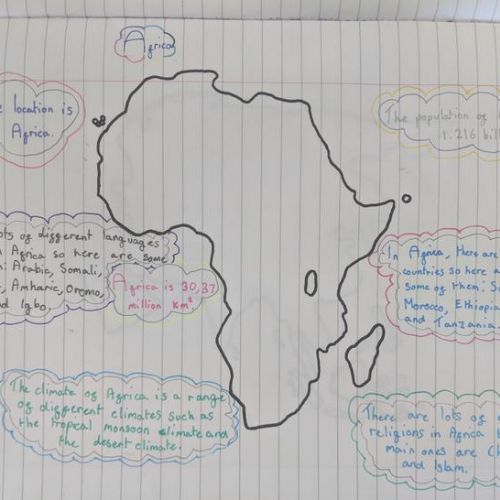 Africa
location is
Africa.
The population of
1.216
of different languages
Africa so here are some
Arabic, Somali,
Amharic, Oromo,
Igbo.
Africa is 30,37
million km²
In Africa, there are
countries so here
some of them:
Morocco,
and Tanzania.
The climate of Africa is a range
of different climates such as
the tropcal monsoon climate and
the desert climate.
There are lots of
religions in Africa
main ones are
and Islam.